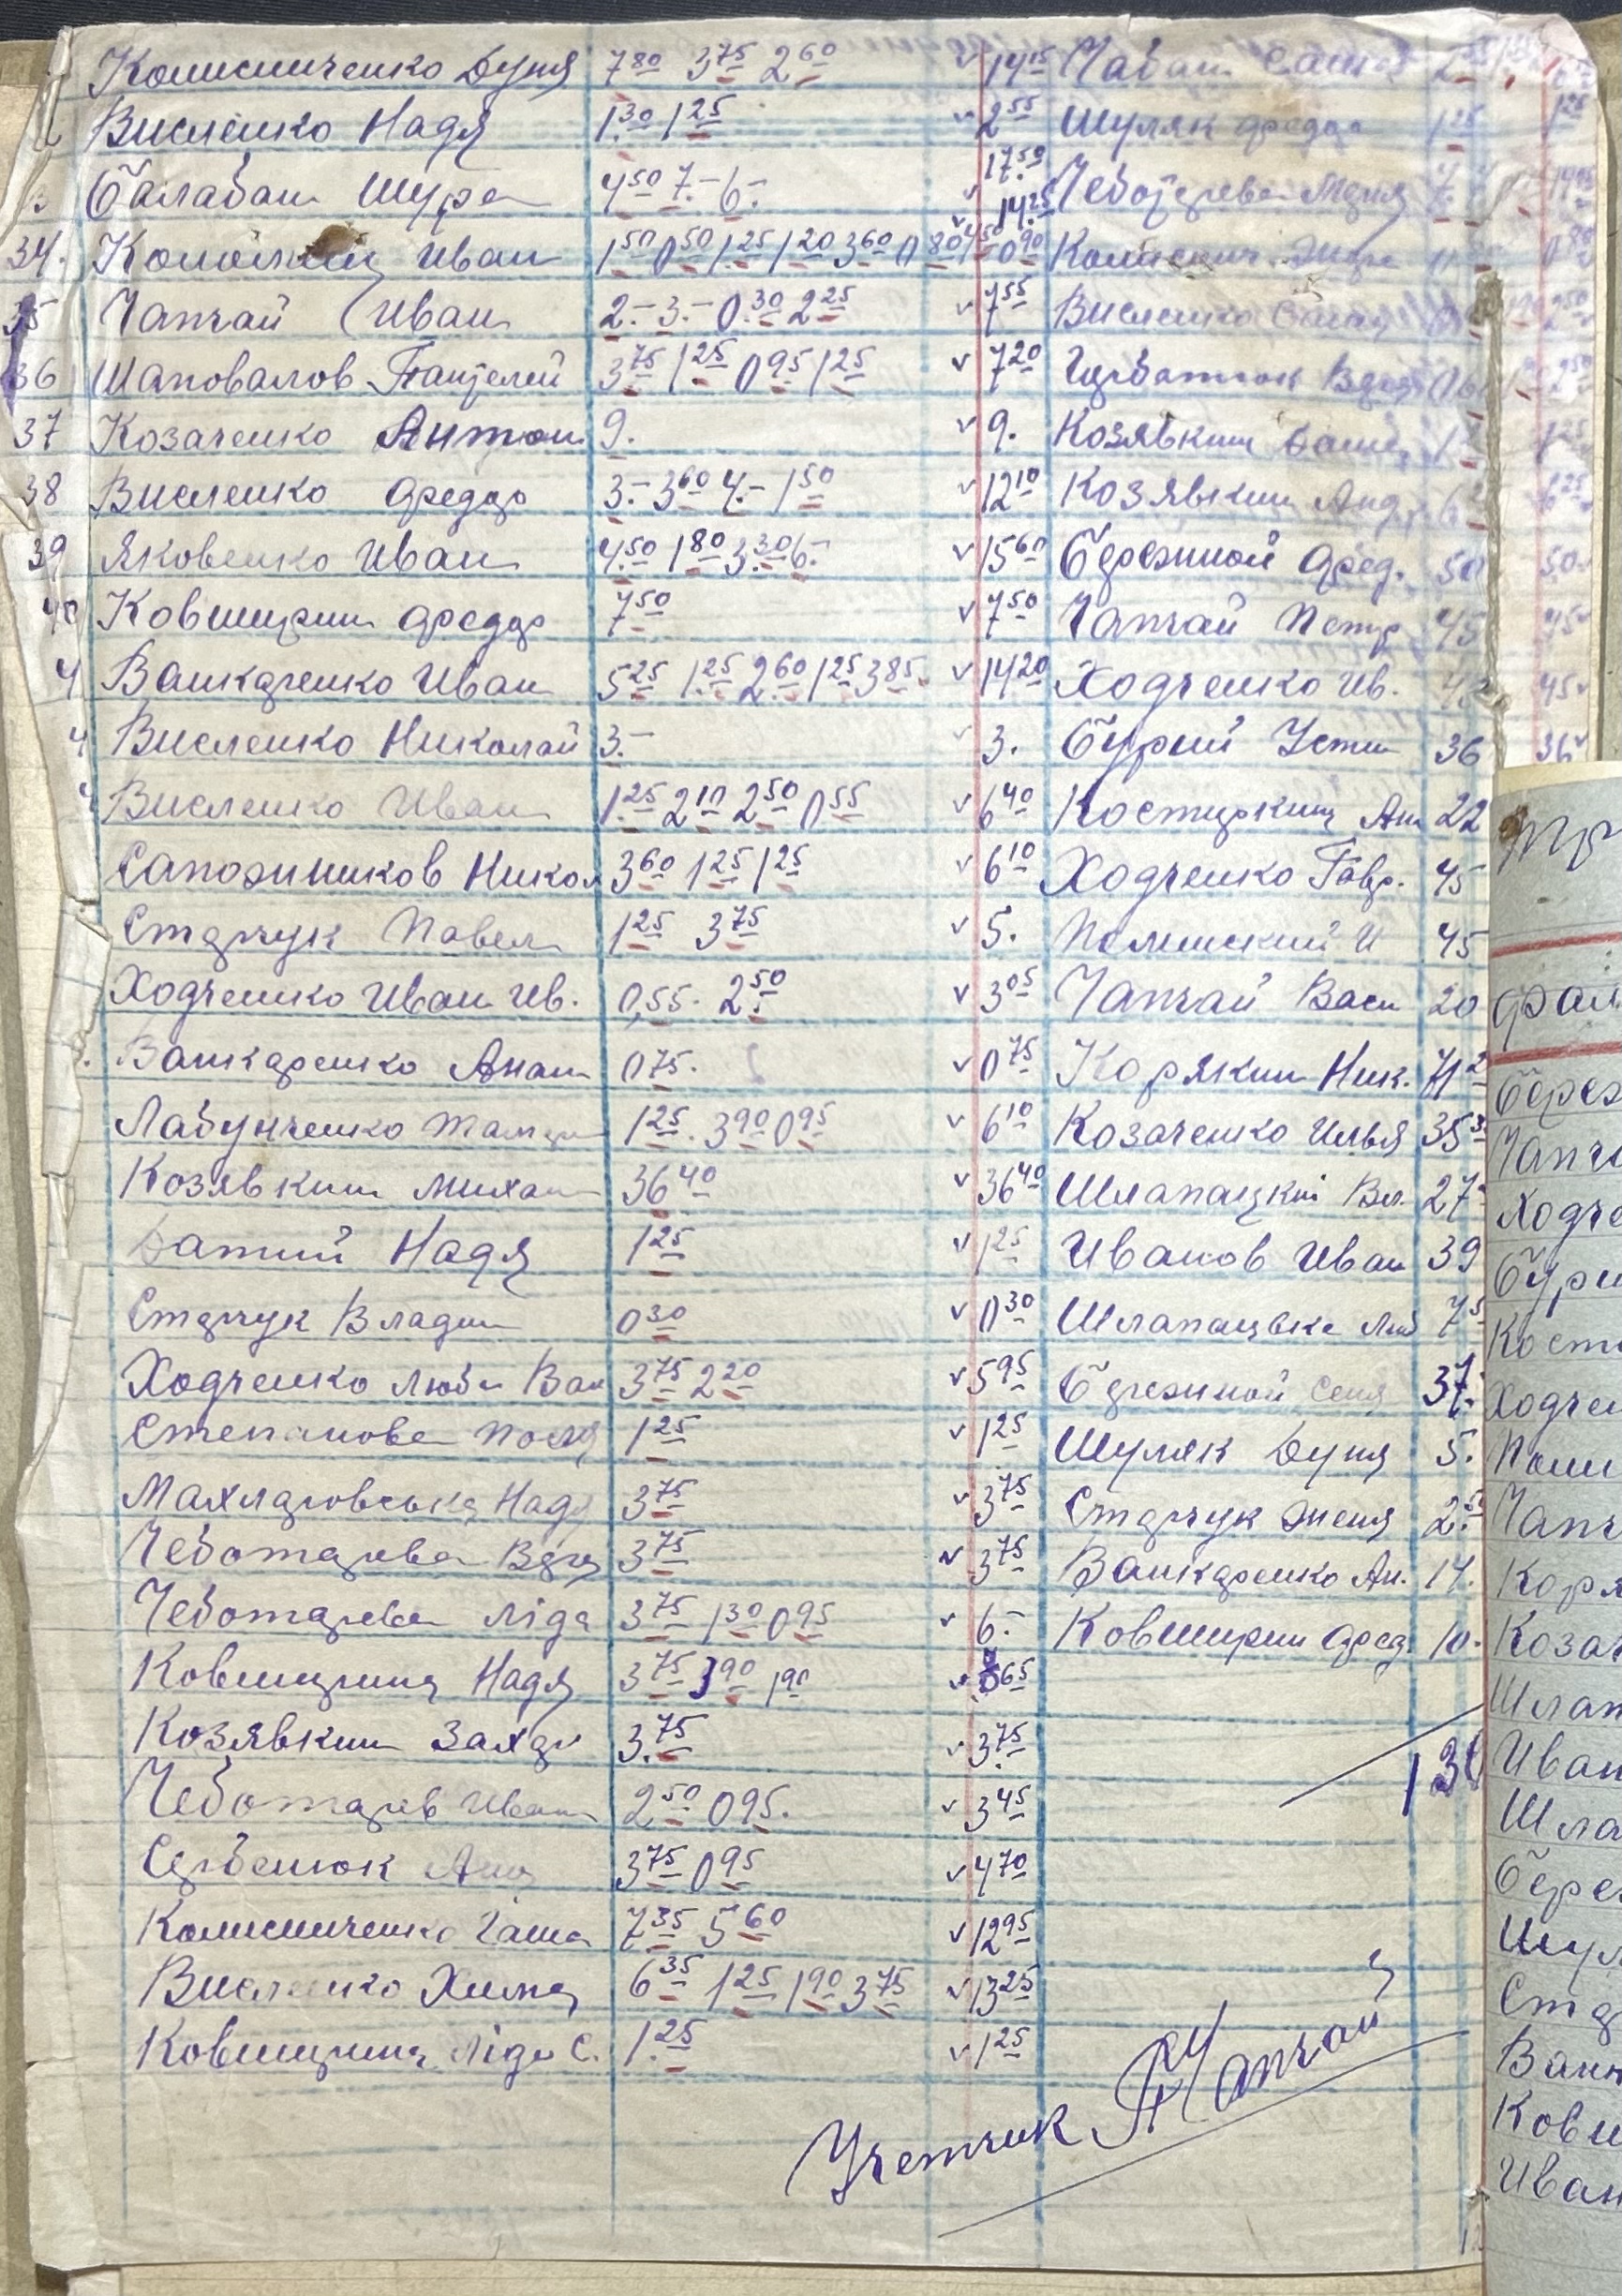 Колисниченко Дуня 7 80 3 75 2 60 v 14 15 Чабан Саша 2
Висленко Надя 1.30 1 25 v 2 55 Шуляк Федор 1 25 1 25
Балабан Шура 4 50 7.- 6.- v 17.50 Чеботарева Маня 7.
34. Иван 1 50 0 50 1 25 1 20 3 60 0 80 4 50 0 90 v 14.25 Колиснич.
35 Чапчай Иван 2.- 3.- 0.30 2 25 v 7 55 Висленко 2 50
36 Шаповалов Пантелей 3 75 1 25 0 95 1 25 v 7 20 Вера
37 Козаченко Антон 9. v 9. Козявкин 1 25
38 Висленко Федор 3.- 3 60 4.- 1 50 v 12 10 Козявкин Анд. 6 25
39 Яковенко Иван 4.50 1 80 3.30 6.- v 15 60 Бережной Фед. 50 50
40 Ковширин Федор 7 50 v 7 50 Чапчай Петр 45 45 v
4 Вашкаренко Иван 5 25 1 25 2 60 1 25 3 85 v 14 20 Ходченко Ив. 45 45 v
4 Висленко Николай 3.- v 3. Бурий Устин 36 36 v
4 Висленко Иван 1.25 2 10 2 50 0 55 v 6 40 Костиркин Ан 22
Сапожников Никол 3 60 1 25 1 25 v 6 10 Ходченко Гавр. 45
Старчук Павел 1 25 3 75 v 5. Полинский И 45
Ходченко Иван Ив. 0,55. 2 50 v 3 05 Чапчай Васи 20
Вашкаренко Анан 0 75. v 0 75 Корякин Ник. 71 2
Лабунченко Тамара 1 25. 3 90 0 95 v 6 10 Козаченко Илья 35 3
Козявкин Михаил 36 40 v 36 40 Шлапацкий Вл. 27
Батий Надя 1 25 v 1 25 Иванов Иван 39
Старчук Владим 0 30 v 0 30 Шлапацька Люб 7 5
Ходченко Люба Вас 3 75 2 20 v 5 95 Бережной Сеня 37.
Степанова Поля 1 25 v 1 25 Шуляк Дуня 5.
Махларовська Надя 3 75 v 3 75 Старчук Женя 2.5
Чеботарева Вера 3 75 v 3 75 Вашкаренко Ан. 14.
Чеботарева Ліда 3 75 1 30 0 95 v 6.- Ковширин Фед. 10.
Ковширина Надя 3 75 3 90 1 90 v 65
Козявкин Захар 3.75 v 3 75
Чеботарев Иван 2 50 0 95. v 3 45 130
Сербенюк Анна 3 75 0 95 v 4 70
Колисниченко Гаша 7 35 5 60 v 12 95
Висленко Хима 6 35 1 25 1 90 3 75 v 13 25
Ковширина Ліда С. 1.25 v 1 25
Учетчик Чапчай
фам
Береж
Чапча
Ходче
Бури
Кост
Ходчен
Поли
Чапч
Коря
Козач
Шлап
Иван
Шла
Береж
Шул
Ста
Ваш
Ковш
Иван